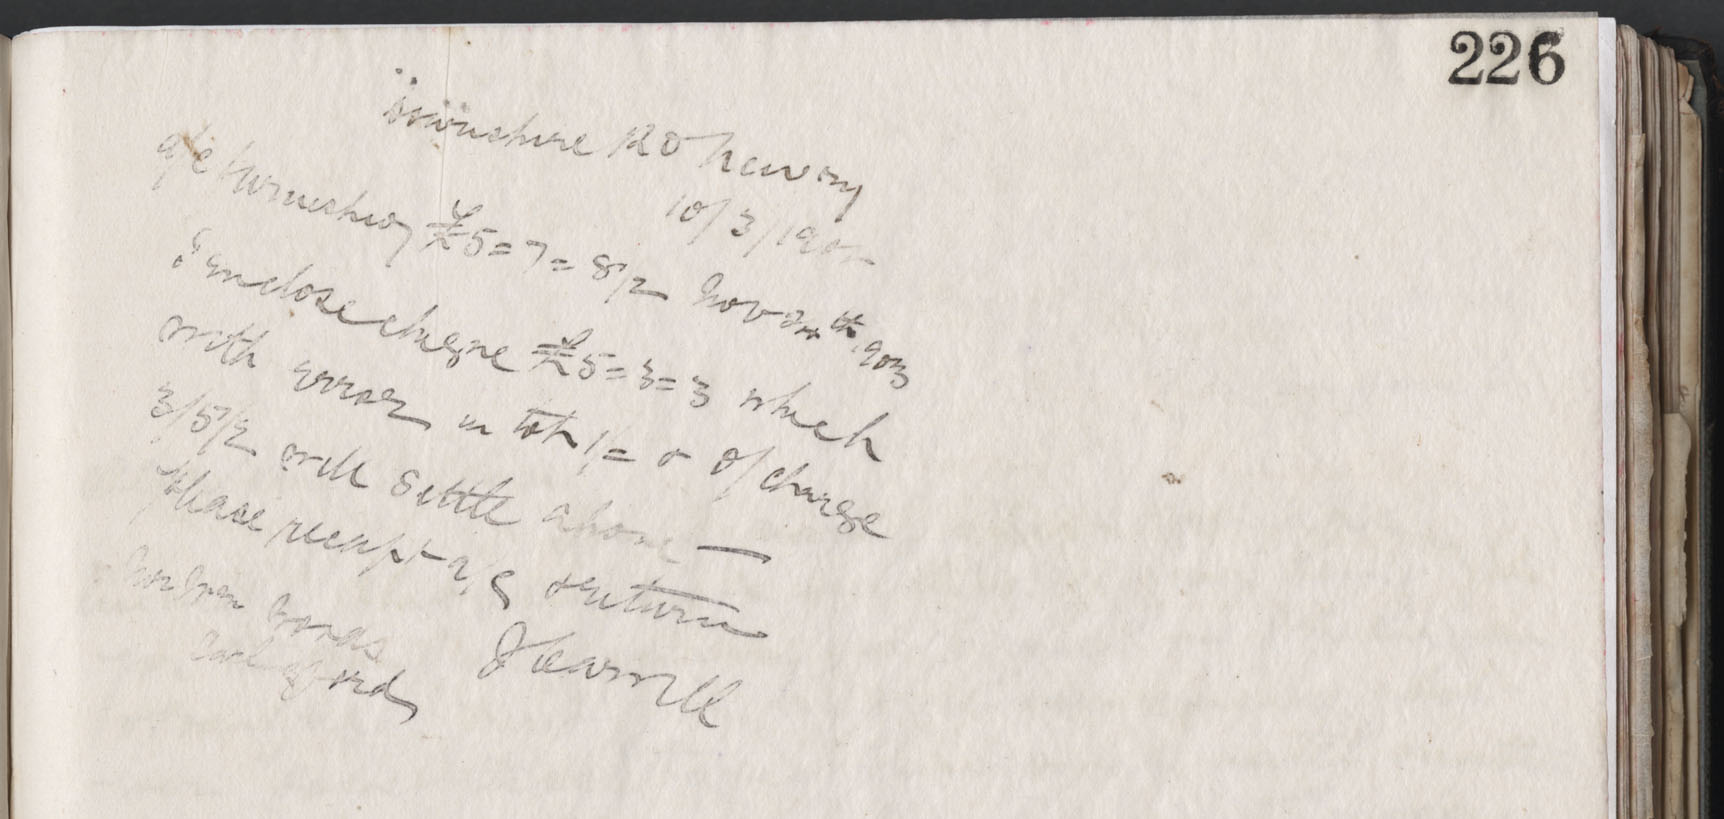 226
Downshire Rd Newry
10/3/190
a/c furnishing £5=7=8½ Nov 1903
I enclose cheque £5=3=3 which
with error in tot 1/= & o/charge
3/5½ will settle above —
Please receipt a/c & return
Bros
Carlingford